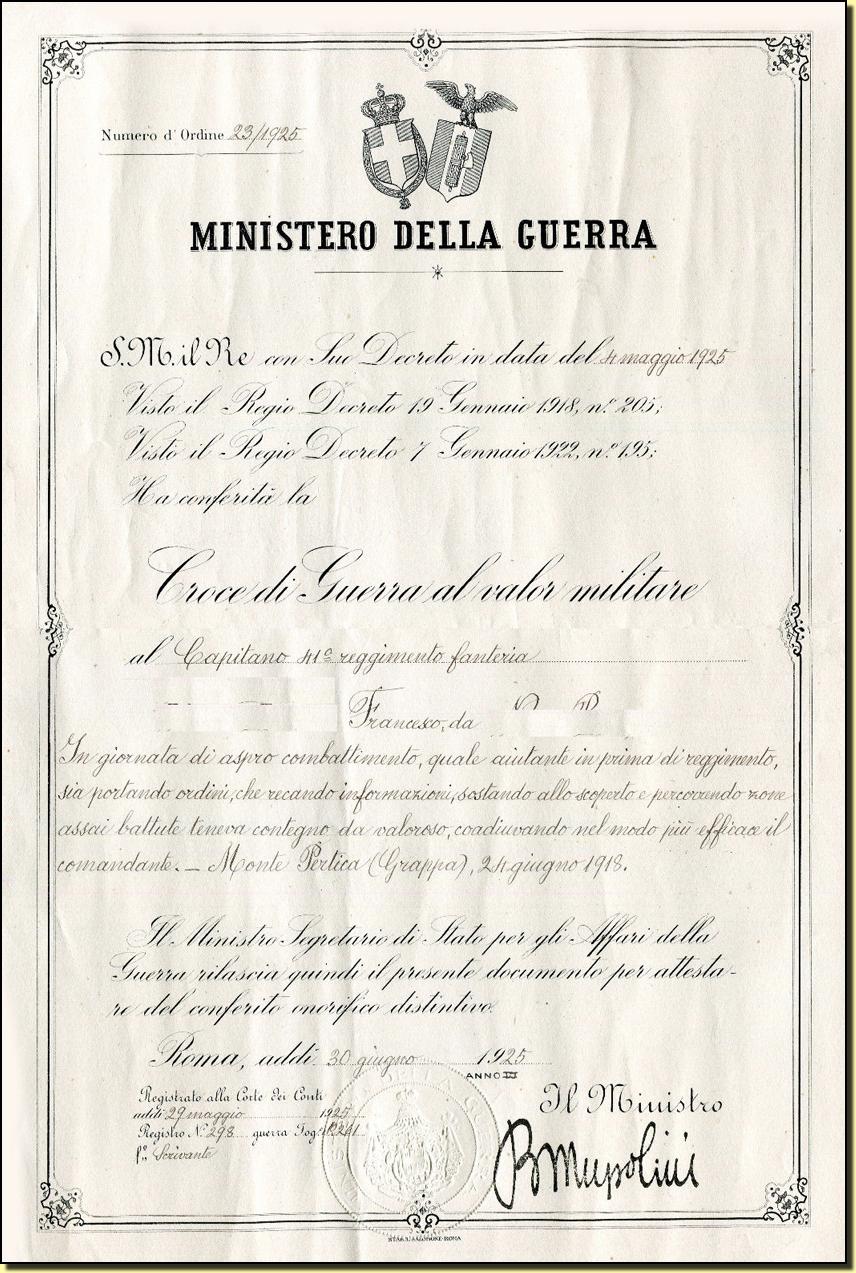 Numero d'Ordine 23/1925
MINISTERO DELLA GUERRA
S.M. il Re con Suo Decreto in data del 4 maggio 1925
Visto il Regio Decreto 19 Gennaio 1918, n.º 205;
Visto il Regio Decreto 7 Gennaio 1922, n.º 195;
Ha conferita la
Croce di Guerra al valor militare
al Capitano 41º reggimento fanteria
Francesco, da
In giornata di aspro combattimento, quale aiutante in prima di reggimento,
sia portando ordini, che recando informazioni, sostando allo scoperto e percorrendo zone
assai battute teneva contegno da valoroso, coadiuvando nel modo più efficace il
comandante. – Monte Pertica (Grappa), 24 giugno 1918.
Il Ministro Segretario di Stato per gli Affari della
Guerra rilascia quindi il presente documento per attesta-
re del conferito onorifico distintivo.
Roma, addì 30 giugno 1925
ANNO III
Registrato alla Corte dei Conti
addì 29 maggio 1925
Registro N.º 298 guerra Fog.
fº Scrivante
Il Ministro
B Mussolini